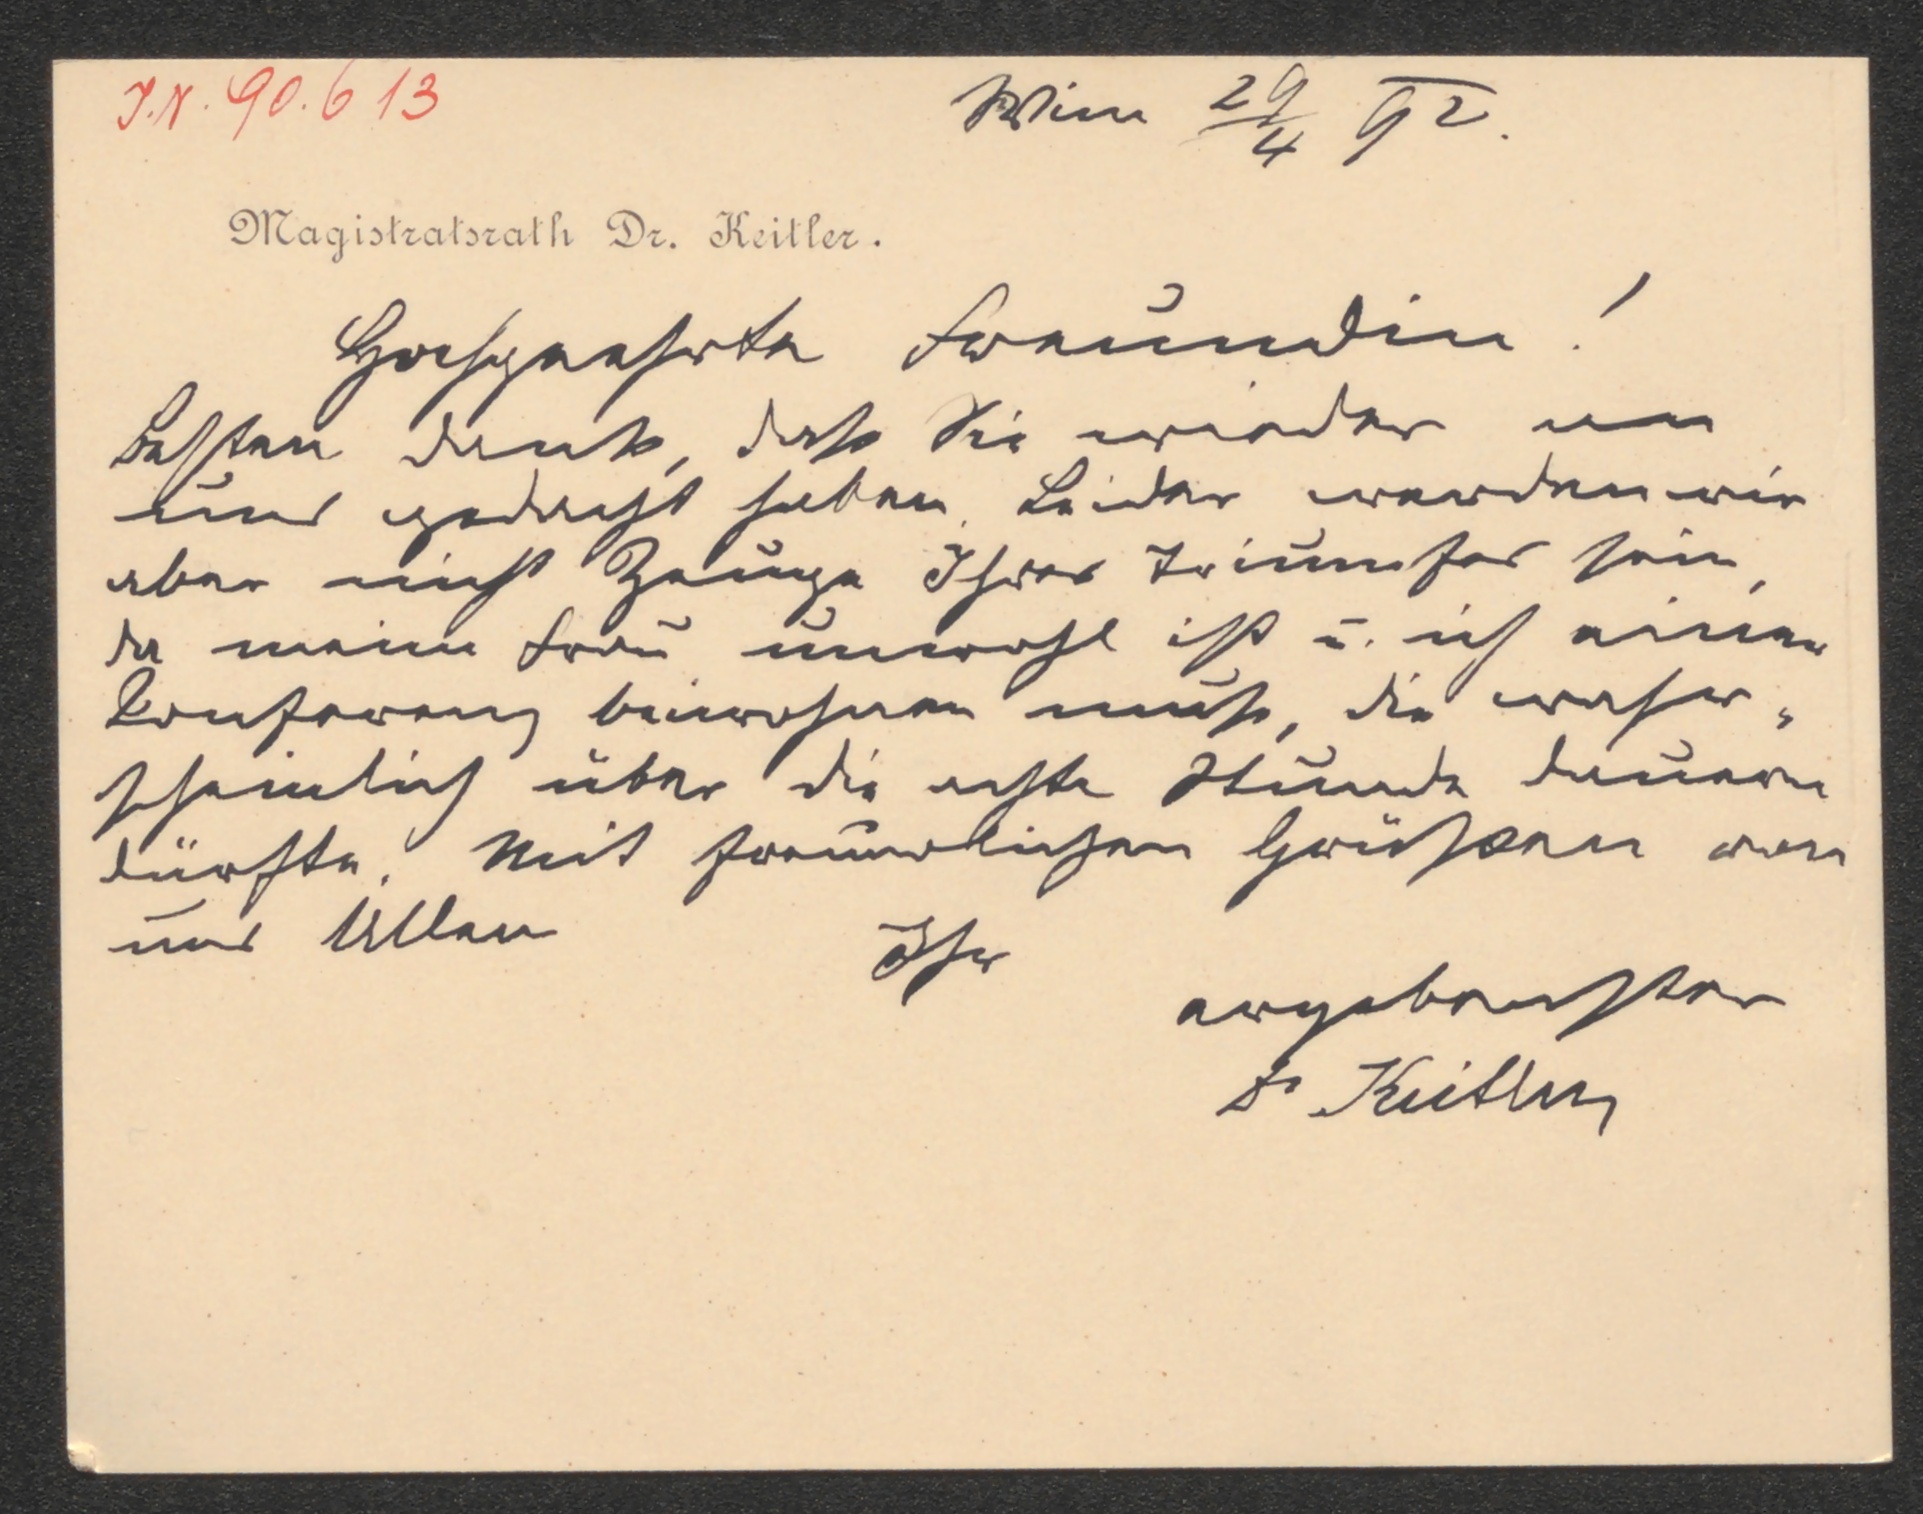 J.N. 90.613
Wien 29/4 92.
Magistratsrath Dr. Keitler.
Hochgeehrte Freundin!
Besten Dank, daß Sie wieder an
uns gedacht haben. Leider werden wir
aber nicht Zeuge Ihres Triumfes sein,
da meine Frau unwohl ist u. ich einer
Conferenz beiwohnen muß, die wahr-
scheinlich über die achte Stunde dauern
dürfte. Mit freundlichen Grüßen von
uns Allen
Ihr
ergebenster
Dr Keitler